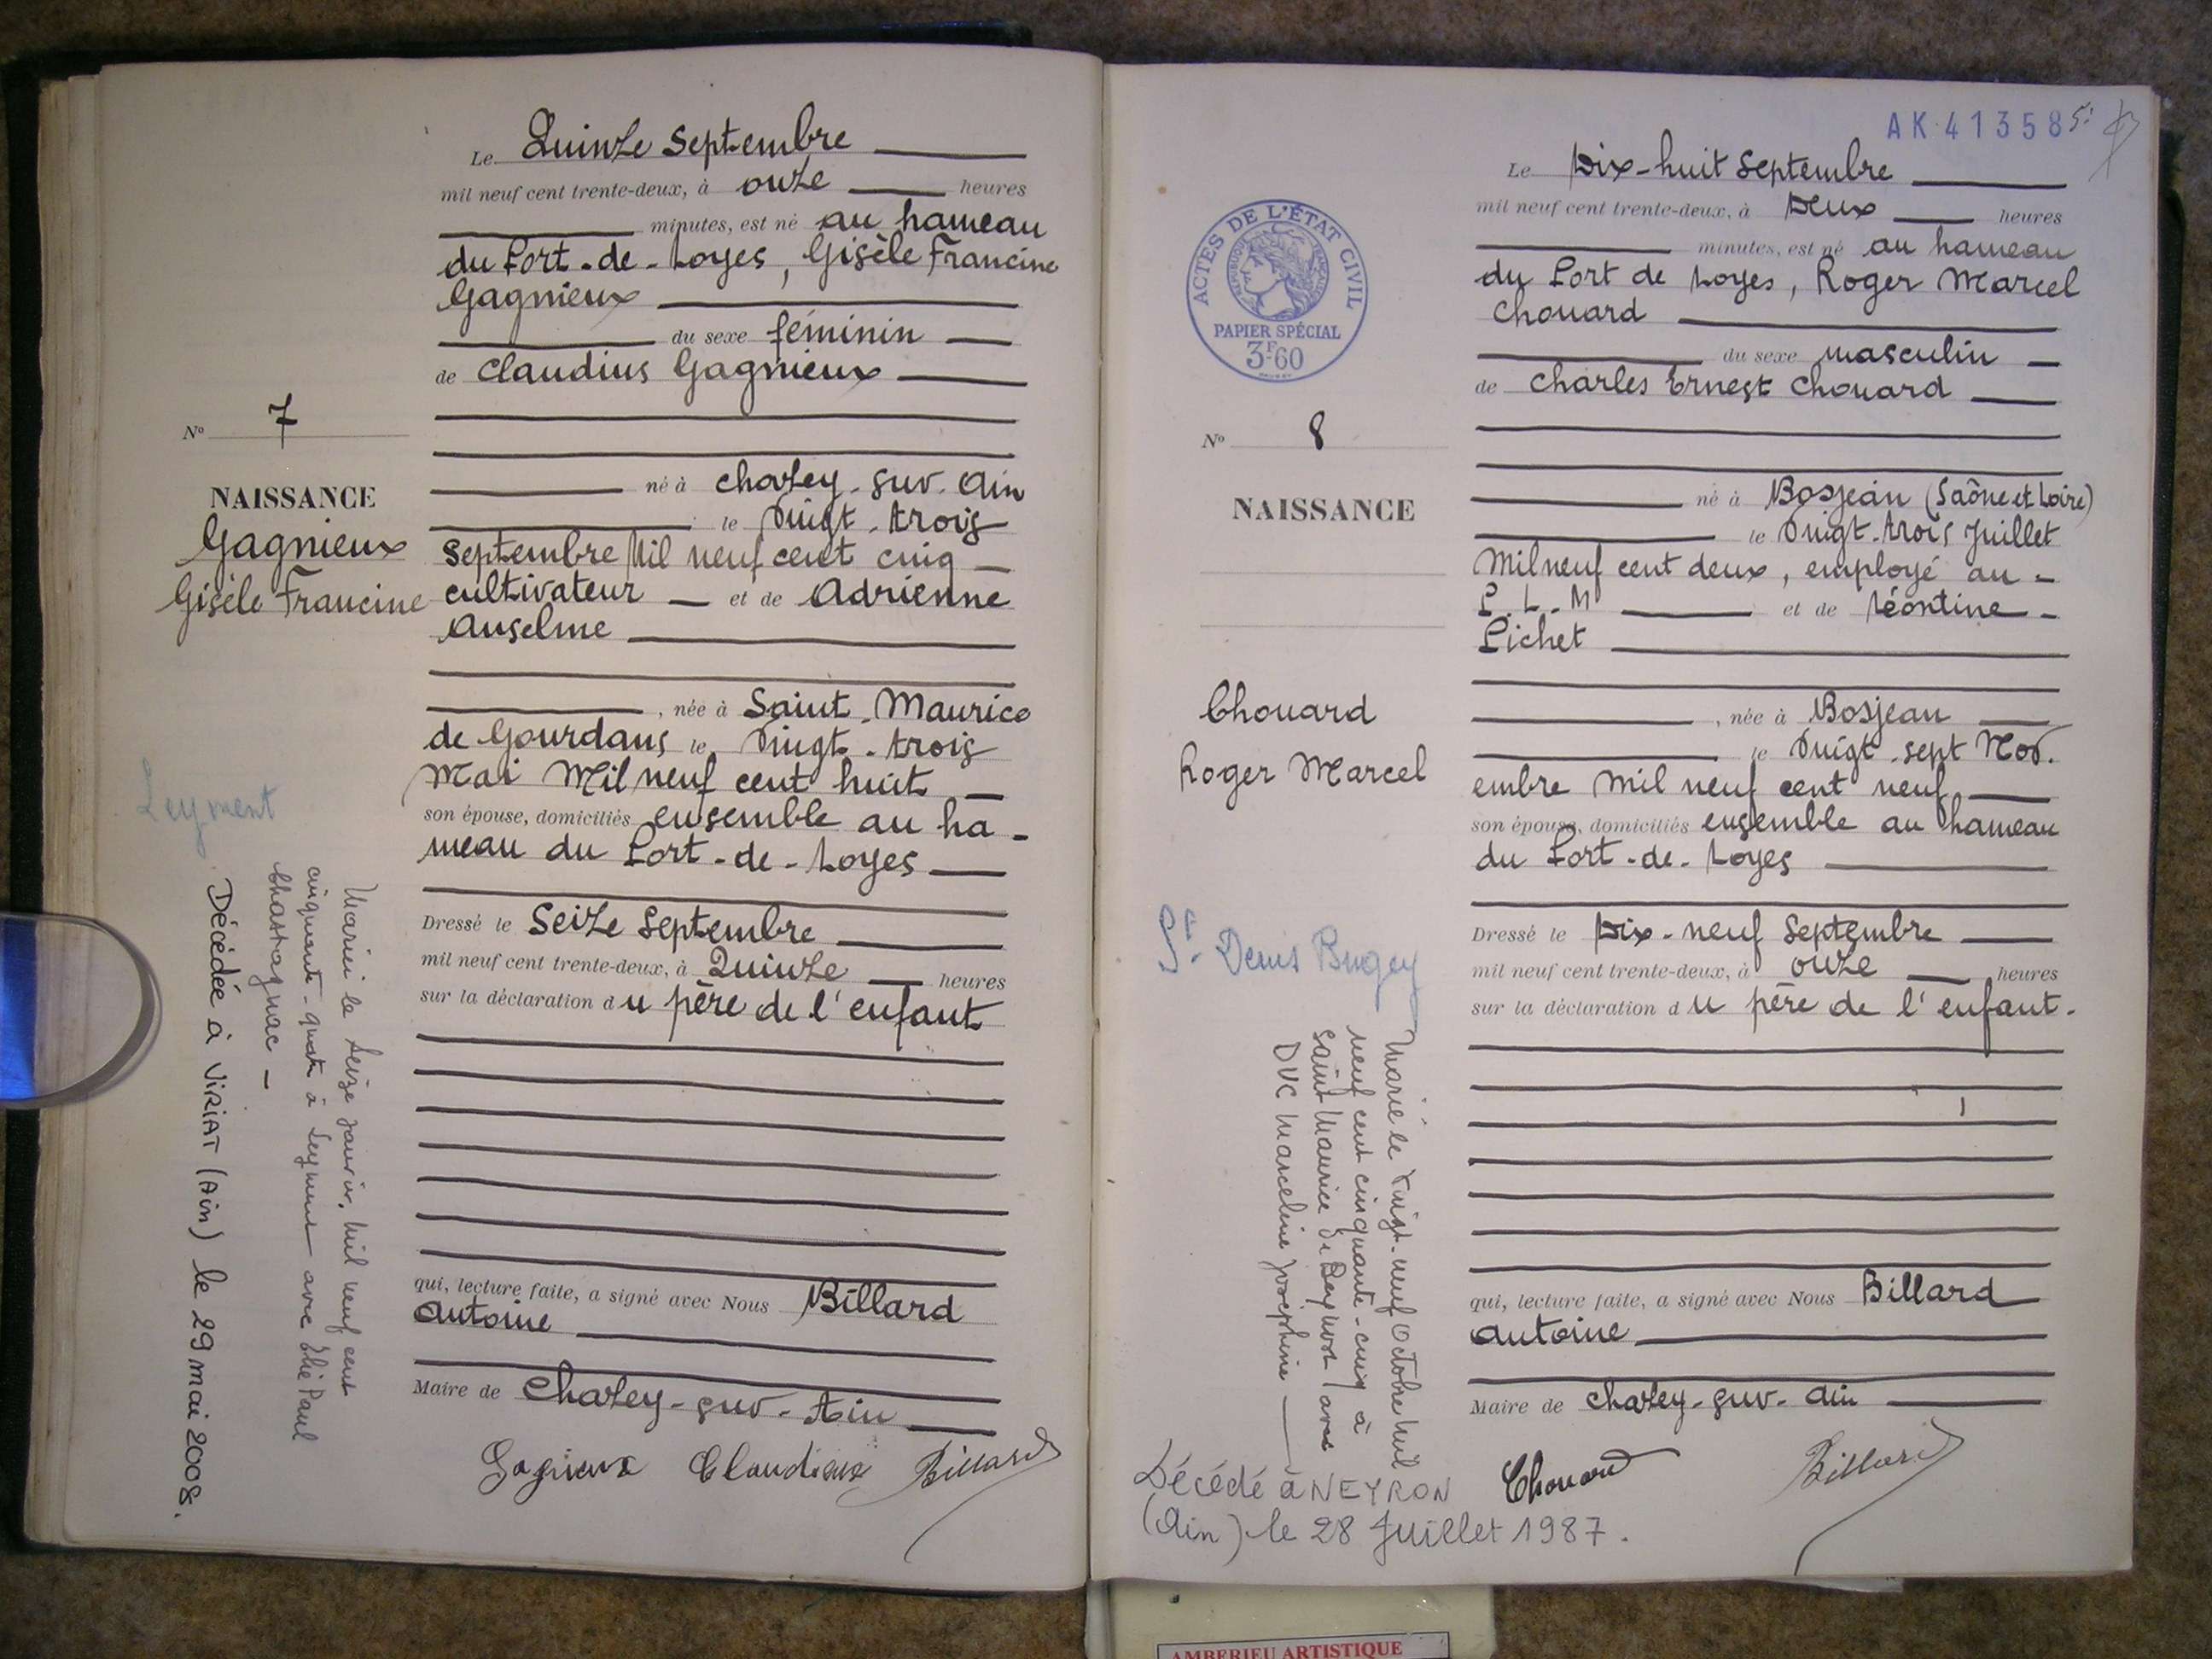 Le Quinze Septembre
mil neuf cent trente-deux, à onze heures
minutes, est né au hameau
du Port-de-Loyes, Gisèle Francine
Gagnieux
du sexe féminin
de Claudius Gagnieux
né à Chazey-sur-Ain
le Vingt-trois
Septembre Mil neuf cent cinq
cultivateur et de Adrienne
Anselme
, née à Saint-Maurice
de Gourdans le Vingt-trois
Mai Mil neuf cent huit
son épouse, domiciliés ensemble au ha-
meau du Port-de-Loyes
Dressé le Seize Septembre
mil neuf cent trente-deux, à Quinze heures
sur la déclaration du père de l'enfant
qui, lecture faite, a signé avec Nous Billard
Antoine
Maire de Chazey-sur-Ain
Gagnieux Claudius Billard
N° 7
NAISSANCE
Gagnieux
Gisèle Francine
Leyment
Mariée le seize janvier, mil neuf cent
cinquante-quatre à Leyment avec Elie Paul
Chastagnac -
Décédée à VIRIAT (Ain) le 29 mai 2008.
AK 41358
Le Dix-huit Septembre
mil neuf cent trente-deux, à Deux heures
minutes, est né au hameau
du Port de Loyes, Roger Marcel
Chouard
du sexe masculin
de Charles Ernest Chouard
né à Bosjean (Saône et Loire)
le Vingt-trois Juillet
Mil neuf cent deux, employé au -
P.L.M et de Léontine -
Pichet
, née à Bosjean
le Vingt-sept Nov.
embre mil neuf cent neuf
son épouse, domiciliés ensemble au hameau
du Port-de-Loyes
Dressé le Dix-neuf Septembre
mil neuf cent trente-deux, à onze heures
sur la déclaration du père de l'enfant.
qui, lecture faite, a signé avec Nous Billard
Antoine
Maire de Chazey-sur-Ain
Chouard Billard
ACTES DE L'ÉTAT CIVIL
RÉPUBLIQUE FRANÇAISE
PAPIER SPÉCIAL
3F60
N° 8
NAISSANCE
Chouard
Roger Marcel
St Denis Bugey
Marié le vingt-neuf Octobre mil
neuf cent cinquante-cinq à
Saint Maurice de Beynost avec
DUC Marceline Joséphine
Décédé à NEYRON
(Ain) le 28 Juillet 1987.
AMBERIEU ARTISTIQUE